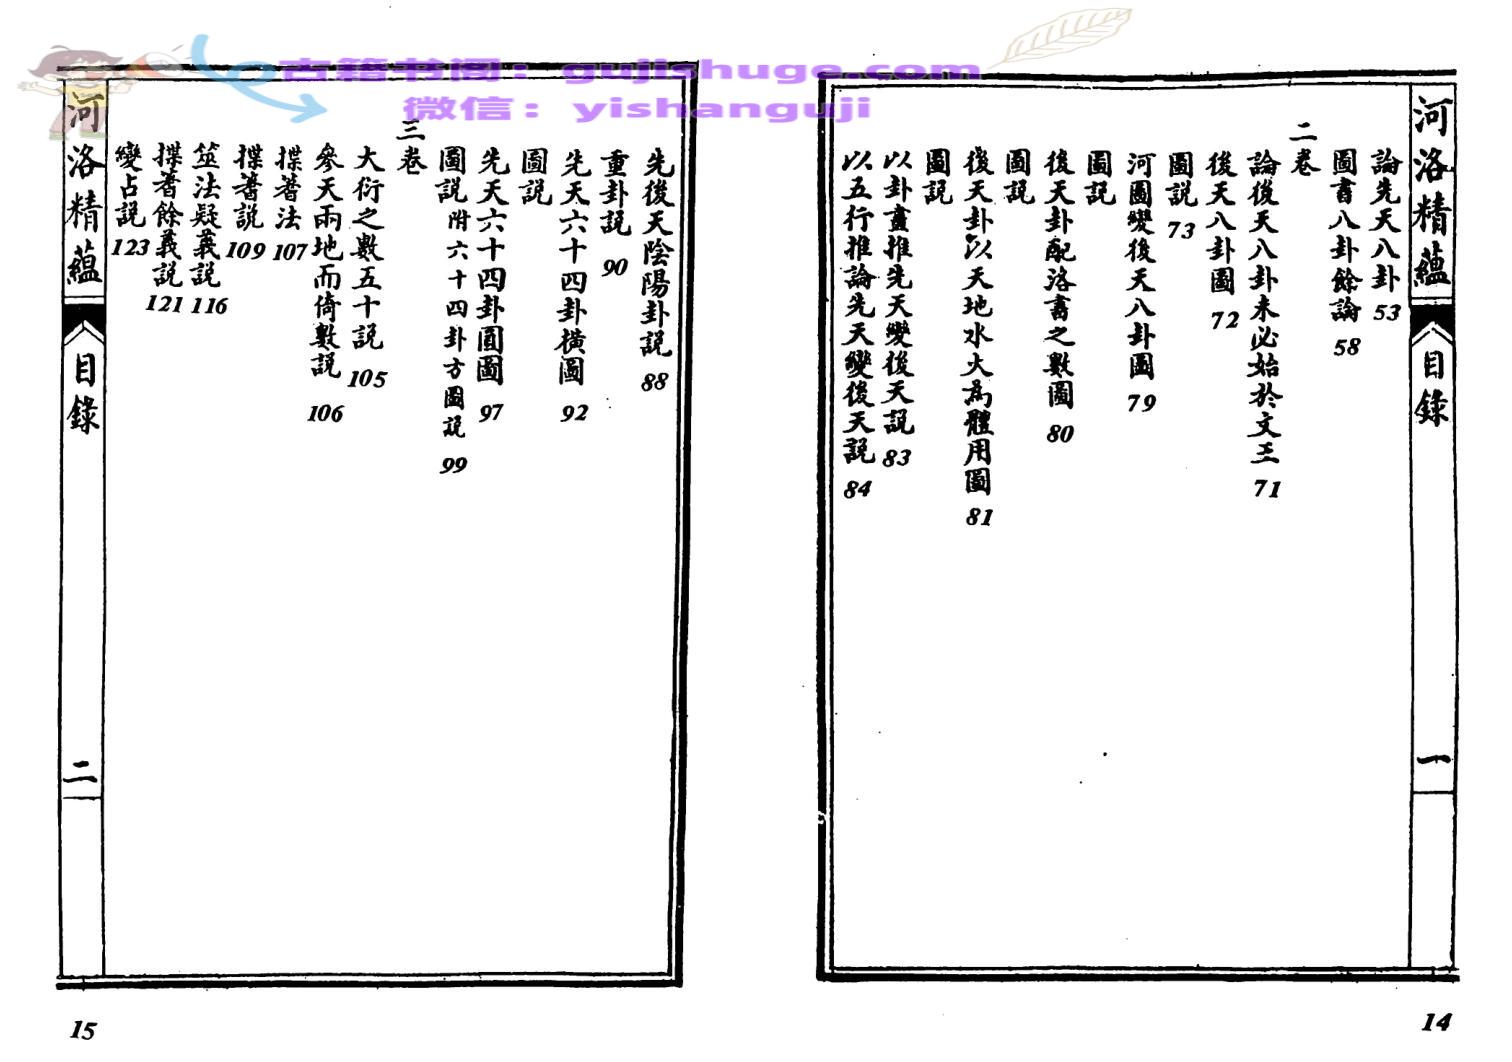 古籍书阁：gujishuge.com
微信：yishanguji
河洛精蘊
目錄
一
論先天八卦 53
圖書八卦餘論 58
二卷
論後天八卦未必始於文王 71
後天八卦圖 72
圖説 73
河圖變後天八卦圖 79
圖説
後天卦配洛書之數圖 80
圖説
後天卦以天地水火為體用圖 81
圖説
以卦畫推先天變後天説 83
以五行推論先天變後天説 84
14
先後天陰陽卦説 88
重卦説 90
先天六十四卦橫圖 92
圖説
先天六十四卦圓圖 97
圖説附六十四卦方圖説 99
三卷
大衍之數五十説 105
參天兩地而倚數説 106
揲蓍法 107
揲蓍説 109
筮法疑義説 116
揲蓍餘義説 121
變占説 123
河洛精蘊
目錄
二
15